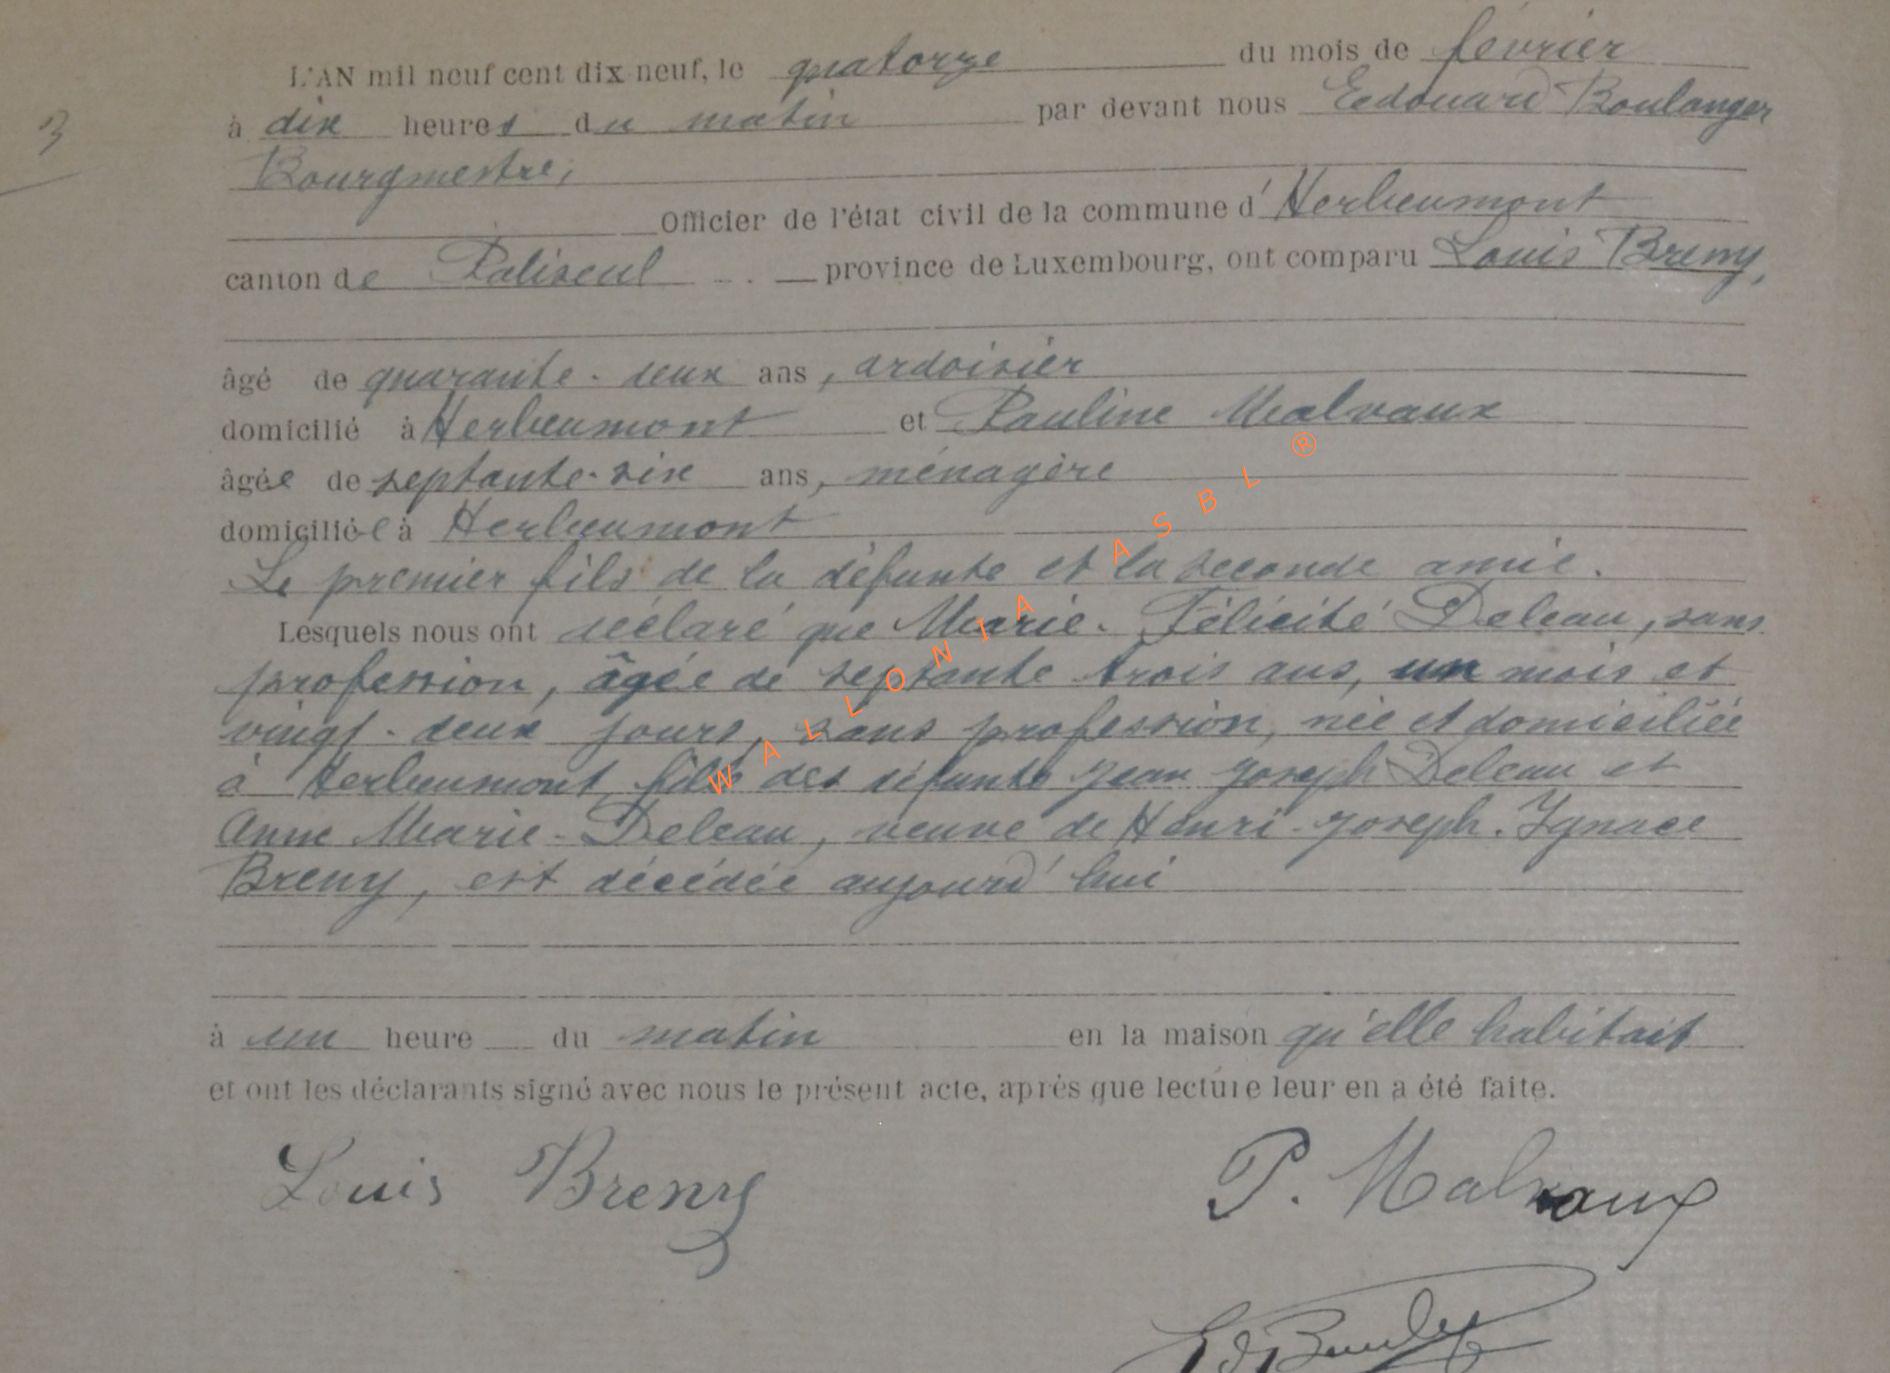 L'AN mil neuf cent dix-neuf, le quatorze du mois de février
3
à dix heures du matin par devant nous Edouard Boulanger
Bourgmestre,
Officier de l'état civil de la commune d'Herbeumont
canton de Paliseul province de Luxembourg, ont comparu Louis Breny,
âgé de quarante-deux ans, ardoisier
domicilié à Herbeumont et Pauline Malvaux
âgée de septante-six ans, ménagère
domiciliée à Herbeumont
Le premier fils de la défunte et la seconde amie.
Lesquels nous ont déclaré que Marie-Félicité Deleau, sans
profession, âgée de septante trois ans, un mois et
vingt-deux jours, sans profession, née et domiciliée
à Herbeumont, fille des défunts Jean Joseph Deleau et
Anne Marie-Deleau, veuve de Henri-Joseph-Ignace
Breny, est décédée aujourd'hui
à une heure du matin en la maison qu'elle habitait
et ont les déclarants signé avec nous le présent acte, après que lecture leur en a été faite.
Louis Breny P. Malvaux
WALLONIA ASBL ®